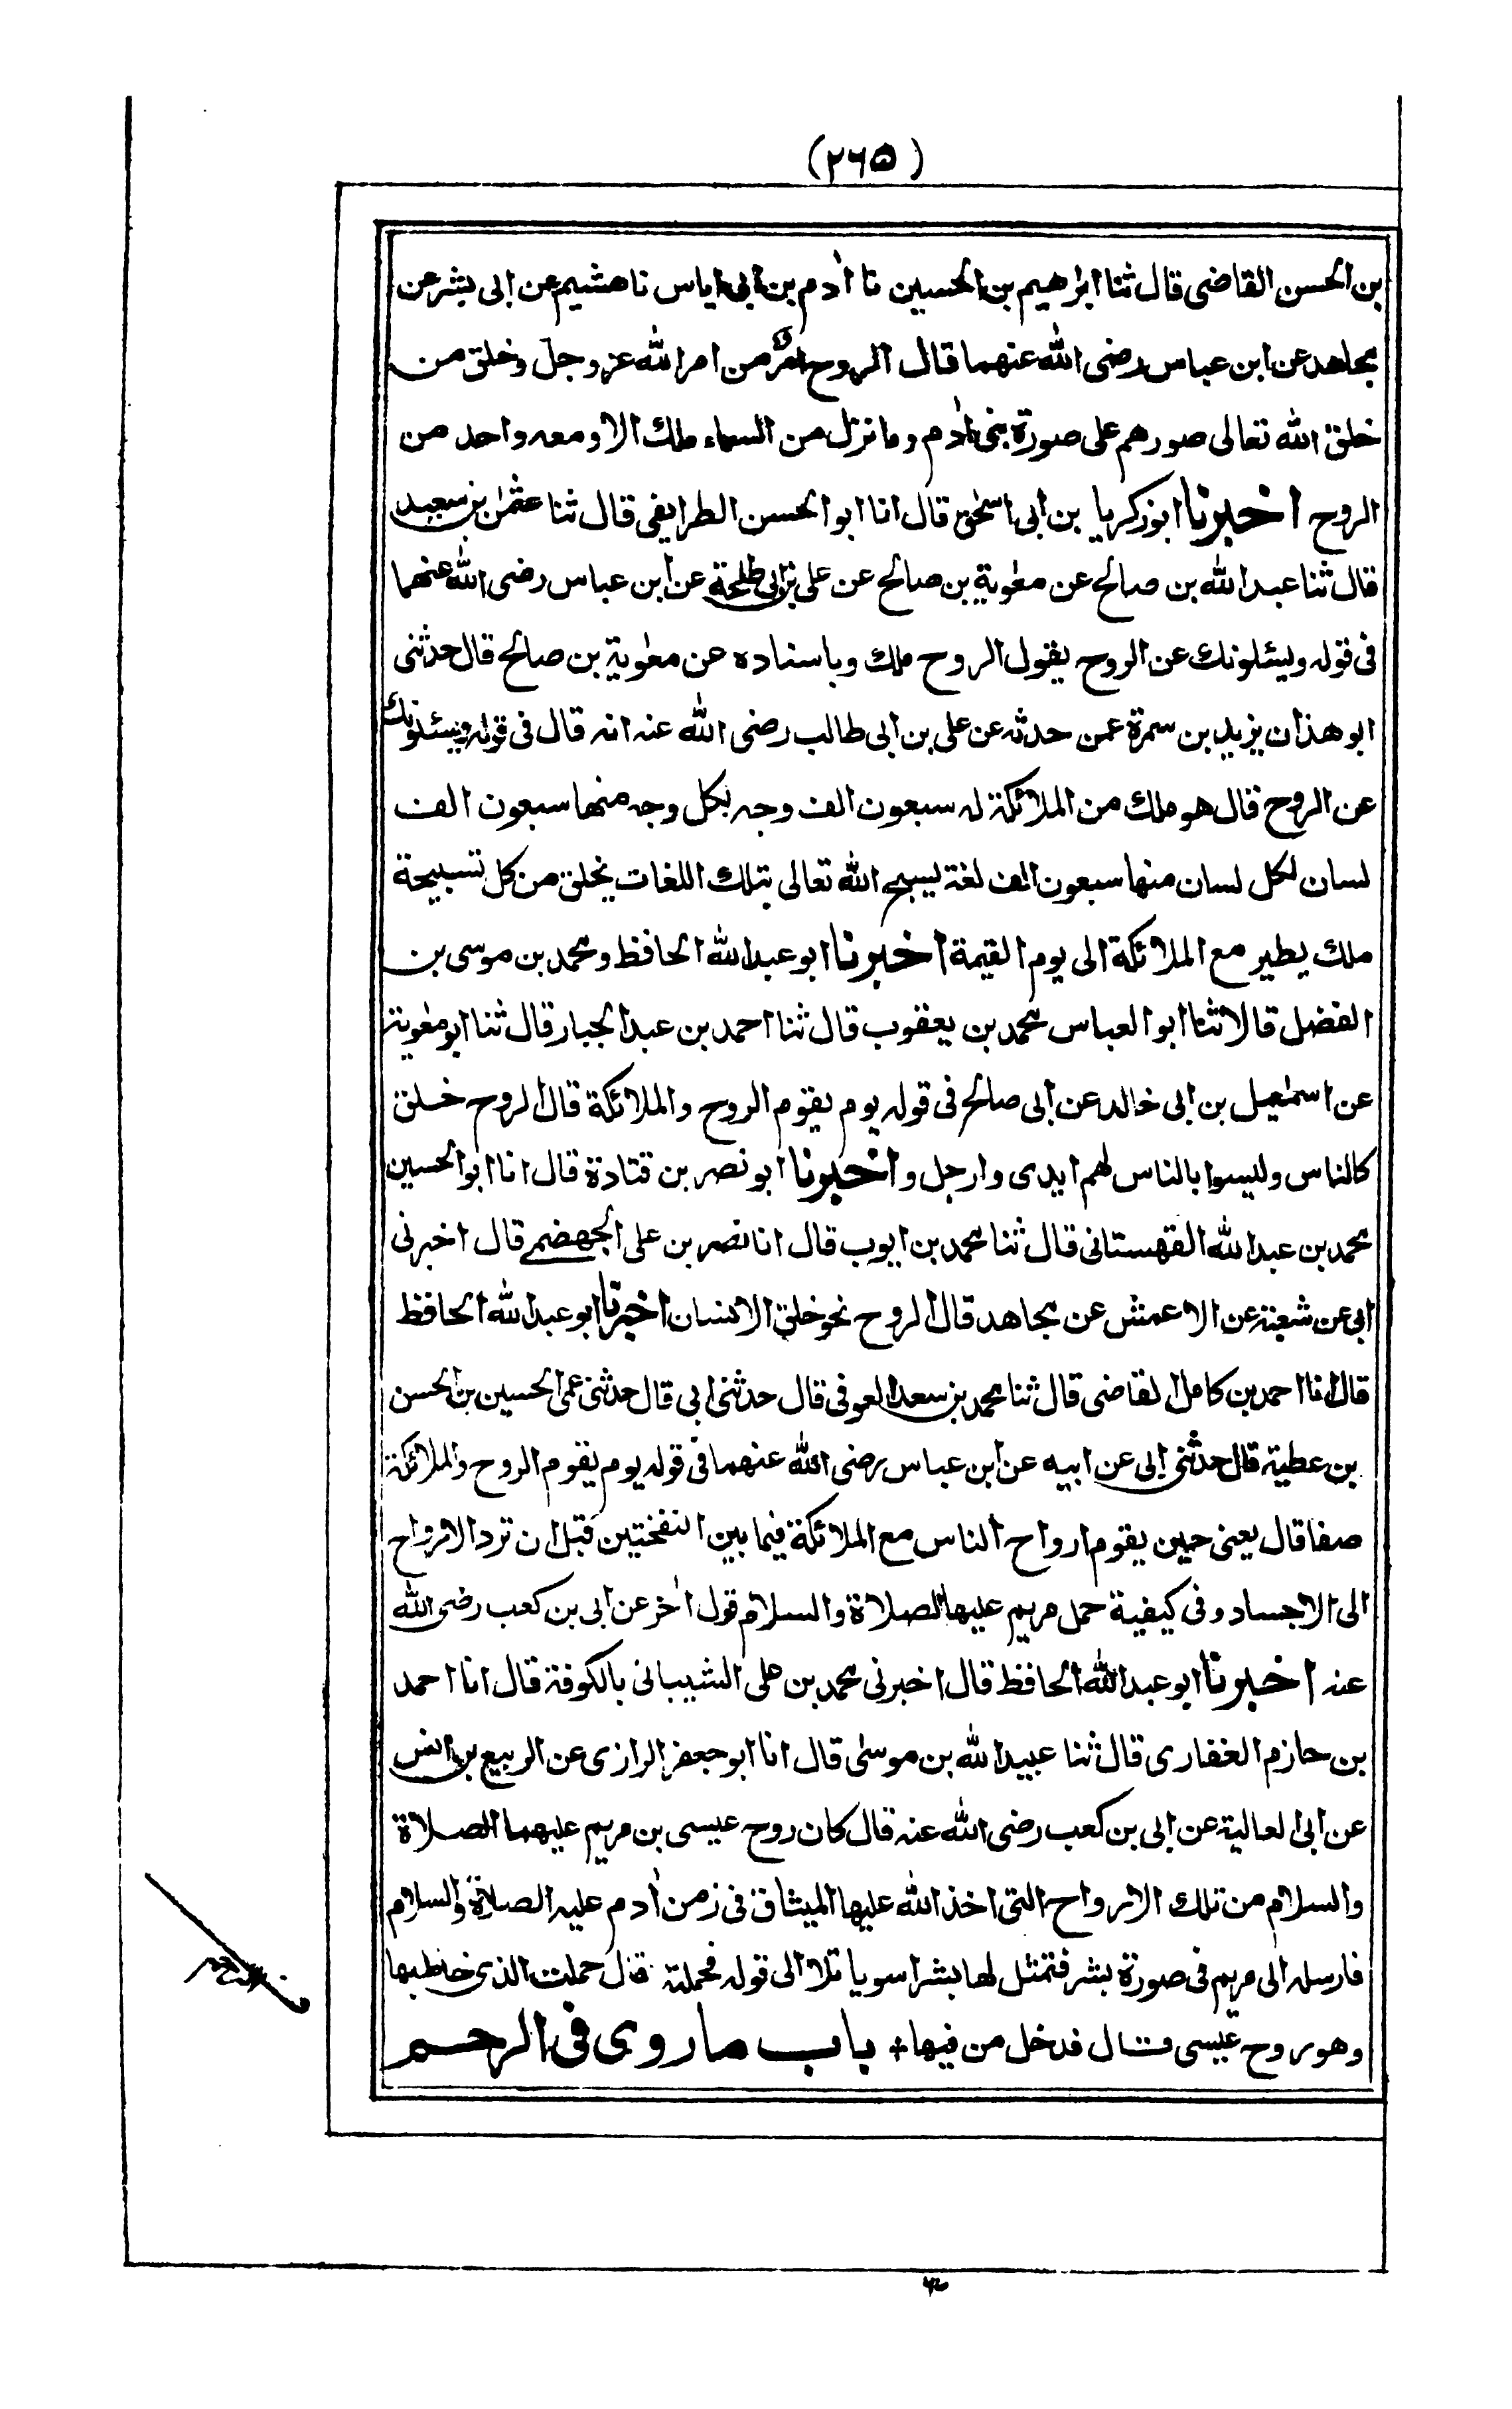 (٢٦٥)
بن الحسن القاضى قال ثنا ابرٰهيم بن الحسين نا اٰدم بن ابى اياس نا هشيم عن ابى بشر عن
مجاهد عن ابن عباس رضى الله عنهما قال الروح امر من امر الله عز وجل وخلق من
خلق الله تعالى صورهم على صورة بنى اٰدم وما نزل من السماء ملك الا ومعه واحد من
الروح اخبرنا ابو زكريا بن ابى اسحٰق قال انا ابو الحسن الطرايفى قال ثنا عثمٰن بن سعيد
قال ثنا عبد الله بن صالح عن معٰوية بن صالح عن على بن ابى طلحة عن ابن عباس رضى الله عنهما
فى قوله ويسئلونك عن الروح يقول الروح ملك وباسناده عن معٰوية بن صالح قال حدثنى
ابو هذان يزيد بن سمرة عمن حدثه عن على بن ابى طالب رضى الله عنه انه قال فى قوله ويسئلونك
عن الروح قال هو ملك من الملائكة له سبعون الف وجه بكل وجه منها سبعون الف
لسان لكل لسان منها سبعون الف لغة يسبح الله تعالى بتلك اللغات يخلق من كل تسبيحة
ملك يطير مع الملائكة الى يوم القيمة اخبرنا ابو عبد الله الحافظ ومحمد بن موسى بن
الفضل قالا ثنا ابو العباس محمد بن يعقوب قال ثنا احمد بن عبد الجبار قال ثنا ابو معٰوية
عن اسمٰعيل بن ابى خالد عن ابى صالح فى قوله يوم يقوم الروح والملائكة قال الروح خلق
كالناس وليسوا بالناس لهم ايدى وارجل واخبرنا ابو نصر بن قتادة قال انا ابو الحسين
محمد بن عبد الله القهستانى قال ثنا محمد بن ايوب قال انا نصر بن على الجهضمے قال اخبرنى
ابى عن شعبة عن الاعمش عن مجاهد قال الروح نحو خلق الانسان اخبرنا ابو عبد الله الحافظ
قال انا احمد بن كامل القاضى قال ثنا محمد بن سعد العوفى قال حدثنى ابى قال حدثنى عمى الحسين بن الحسن
بن عطية قال حدثنى ابى عن ابيه عن ابن عباس رضى الله عنهما فى قوله يوم يقوم الروح والملائكة
صفا قال يعنى حين يقوم ارواح الناس مع الملائكة فيما بين النفختين قبل ان ترد الارواح
الى الاجساد وفى كيفية حمل مريم عليها الصلاة والسلام قول اٰخر عن ابى بن كعب رضى الله
عنه اخبرنا ابو عبد الله الحافظ قال اخبرنى محمد بن على الشيبانى بالكوفة قال انا احمد
بن حازم الغفارى قال ثنا عبيد الله بن موسىٰ قال انا ابو جعفر الرازى عن الربيع بن انس
عن ابى العالية عن ابى بن كعب رضى الله عنه قال كان روح عيسى بن مريم عليهما الصلاة
والسلام من تلك الارواح التى اخذ الله عليها الميثاق فى زمن اٰدم عليه الصلاة والسلام
فارسله الى مريم فى صورة بشر فتمثل لها بشرا سويا تلا الى قوله فحملته قال حملت الذى خاطبها
وهو روح عيسى قال فدخل من فيها * باب ما روى فى الرحم